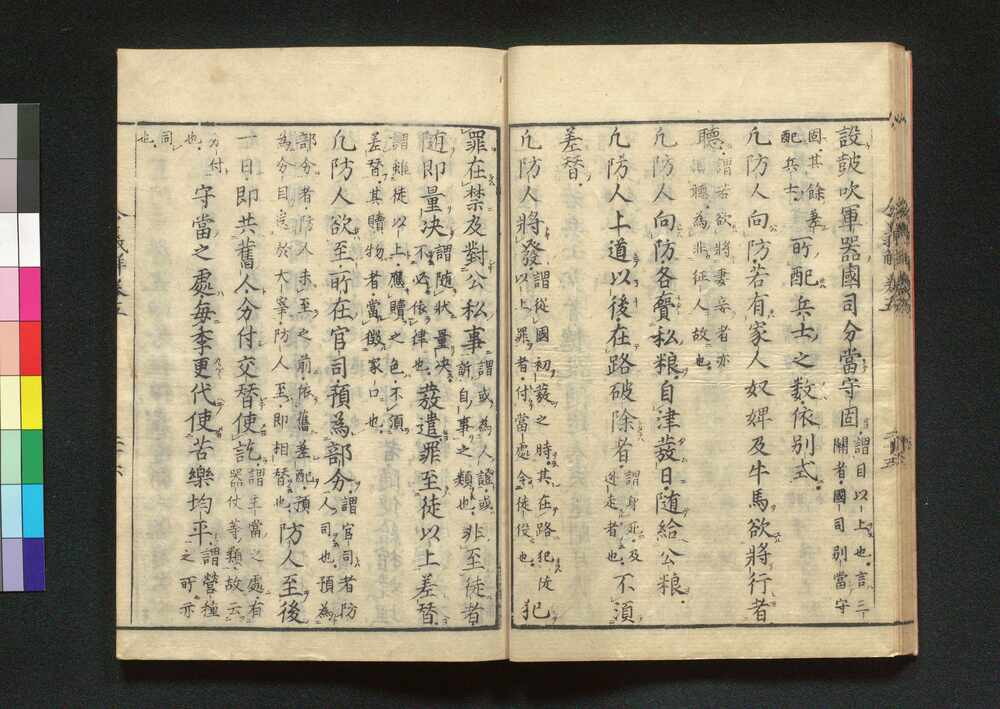 設皷吹軍器國司分當守固謂目以上也言三
關者國司別當守
固其餘差
配兵士所配兵士之数依別式
凢防人向防若有家人奴婢及牛馬欲將行者
聽謂若欲將妻妾者亦
聽為非征人故也
凢防人向防各賷私粮自津發日随給公粮
凢防人上道以後在路破除者謂身死及
逃走者也不須
差替
凢防人將發謂從國初發之時其在路犯徒
以上罪者付當處令徒役也犯
罪在禁及對公私事謂或為人證或
訴自事之類也非至徒者
随即量决謂随状量决
不必依律也發遣罪至徒以上差替
謂雖徒以上應贖之色不須
差替其贖物者當徴家口也
凢防人欲至所在官司預為部分謂官司者防
人司也預為
部分者防人未至之前依舊差配預
為分目送於大宰防人至即相替也防人至後
一日即共舊人分付交替使訖謂主當之處有
器仗等類故云
分付
也守當之處毎季更代使苦樂均平謂營種
之所亦
同
也